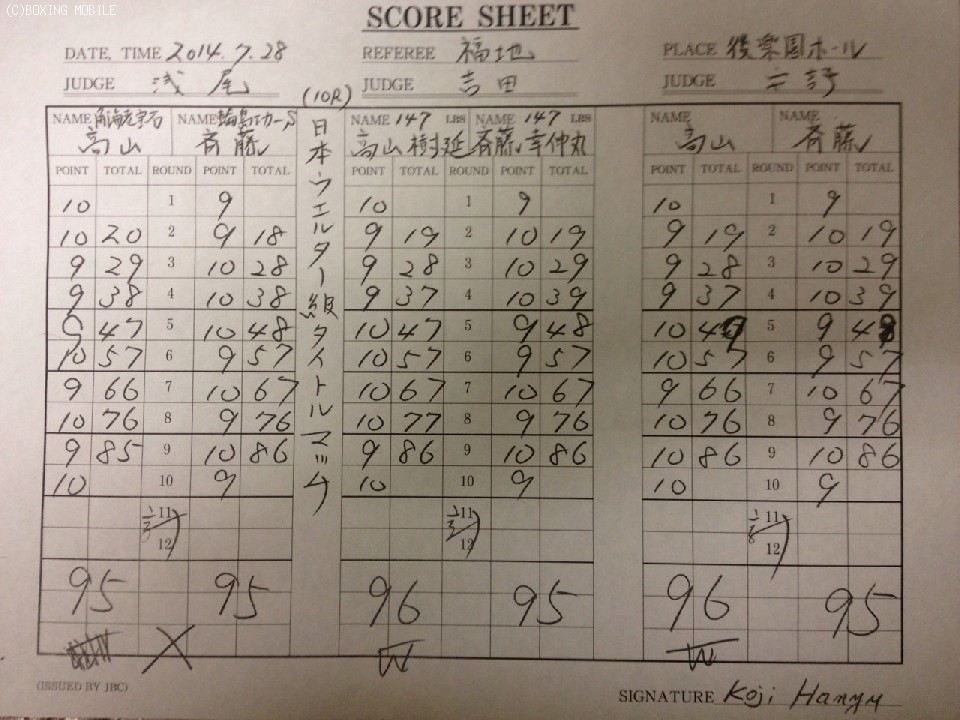 (C)BOXING MOBILE
SCORE SHEET
DATE, TIME 2014.7.28 REFEREE 福地 PLACE 後楽園ホール
JUDGE 浅尾 JUDGE 吉田 JUDGE
(10R)
日本ウエルター級タイトルマッチ
NAME 角海老宝石 NAME NAME 147 LBS NAME 147 LBS NAME NAME
高山 斉藤 高山樹延 斉藤幸伸丸 高山 斉藤
POINT TOTAL ROUND POINT TOTAL POINT TOTAL ROUND POINT TOTAL POINT TOTAL ROUND POINT TOTAL
10 1 9 10 1 9 10 1 9
10 20 2 9 18 9 19 2 10 19 9 19 2 10 19
9 29 3 10 28 9 28 3 10 29 9 28 3 10 29
9 38 4 10 38 9 37 4 10 39 9 37 4 10 39
9 47 5 10 48 10 47 5 9 48 10 47 5 9 48
10 57 6 9 57 10 57 6 9 57 10 57 6 9 57
9 66 7 10 67 10 67 7 10 67 9 66 7 10 67
10 76 8 9 76 10 77 8 9 76 10 76 8 9 76
9 85 9 10 86 9 86 9 10 86 10 86 9 10 86
10 10 9 10 10 9 10 10 9
11 11 11
12 12 12
95 95 96 95 96 95
X W W
(ISSUED BY JBC)
SIGNATURE Koji Hanyu